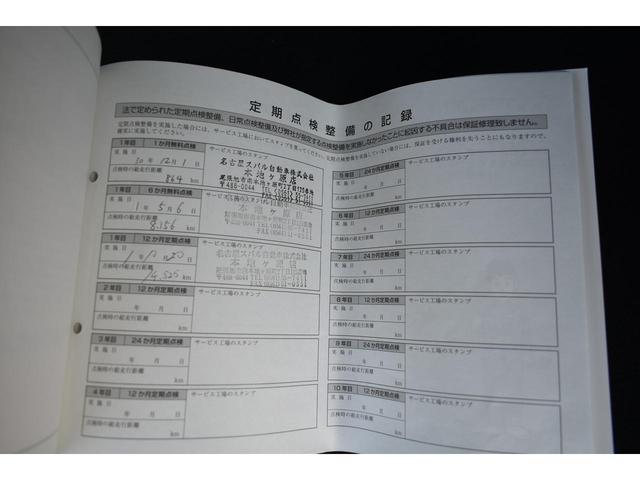 定期点検整備の記録
法で定められた定期点検整備、日常点検整備及び弊社が指定する点検整備を実施しなかったことに起因する不具合は保証修理致しません。
定期点検整備を実施した場合には、サービス工場においてスタンプを
確実に実施してください。
1年目 1か月無料点検
サービス工場のスタンプ
実施日
30年12月1日
点検時の総走行距離
864 km
名古屋スバル自動車株式会社
本地ヶ原店
〒488-0044
1年目 6か月無料点検
サービス工場のスタンプ
実施日
1年5月6日
点検時の総走行距離
8,356 km
本地ヶ原店
1年目 12か月定期点検
サービス工場のスタンプ
実施日
点検時の総走行距離
14,525 km
名古屋スバル自動車株式会社
本地ヶ原店
2年目 12か月定期点検
サービス工場のスタンプ
実施日
年 月 日
点検時の総走行距離
km
3年目 24か月定期点検
サービス工場のスタンプ
実施日
年 月 日
点検時の総走行距離
km
4年目 12か月定期点検
サービス工場のスタンプ
実施日
年 月 日
点検時の総走行距離
km
5年目 24か月定期点検
サービス工場のスタンプ
実施日
年 月 日
点検時の総走行距離
km
6年目 12か月定期点検
サービス工場のスタンプ
実施日
年 月 日
点検時の総走行距離
km
7年目 24か月定期点検
サービス工場のスタンプ
実施日
年 月 日
点検時の総走行距離
km
8年目 12か月定期点検
サービス工場のスタンプ
実施日
年 月 日
点検時の総走行距離
km
9年目 24か月定期点検
サービス工場のスタンプ
実施日
年 月 日
点検時の総走行距離
km
10年目 12か月定期点検
サービス工場のスタンプ
実施日
年 月 日
点検時の総走行距離
km